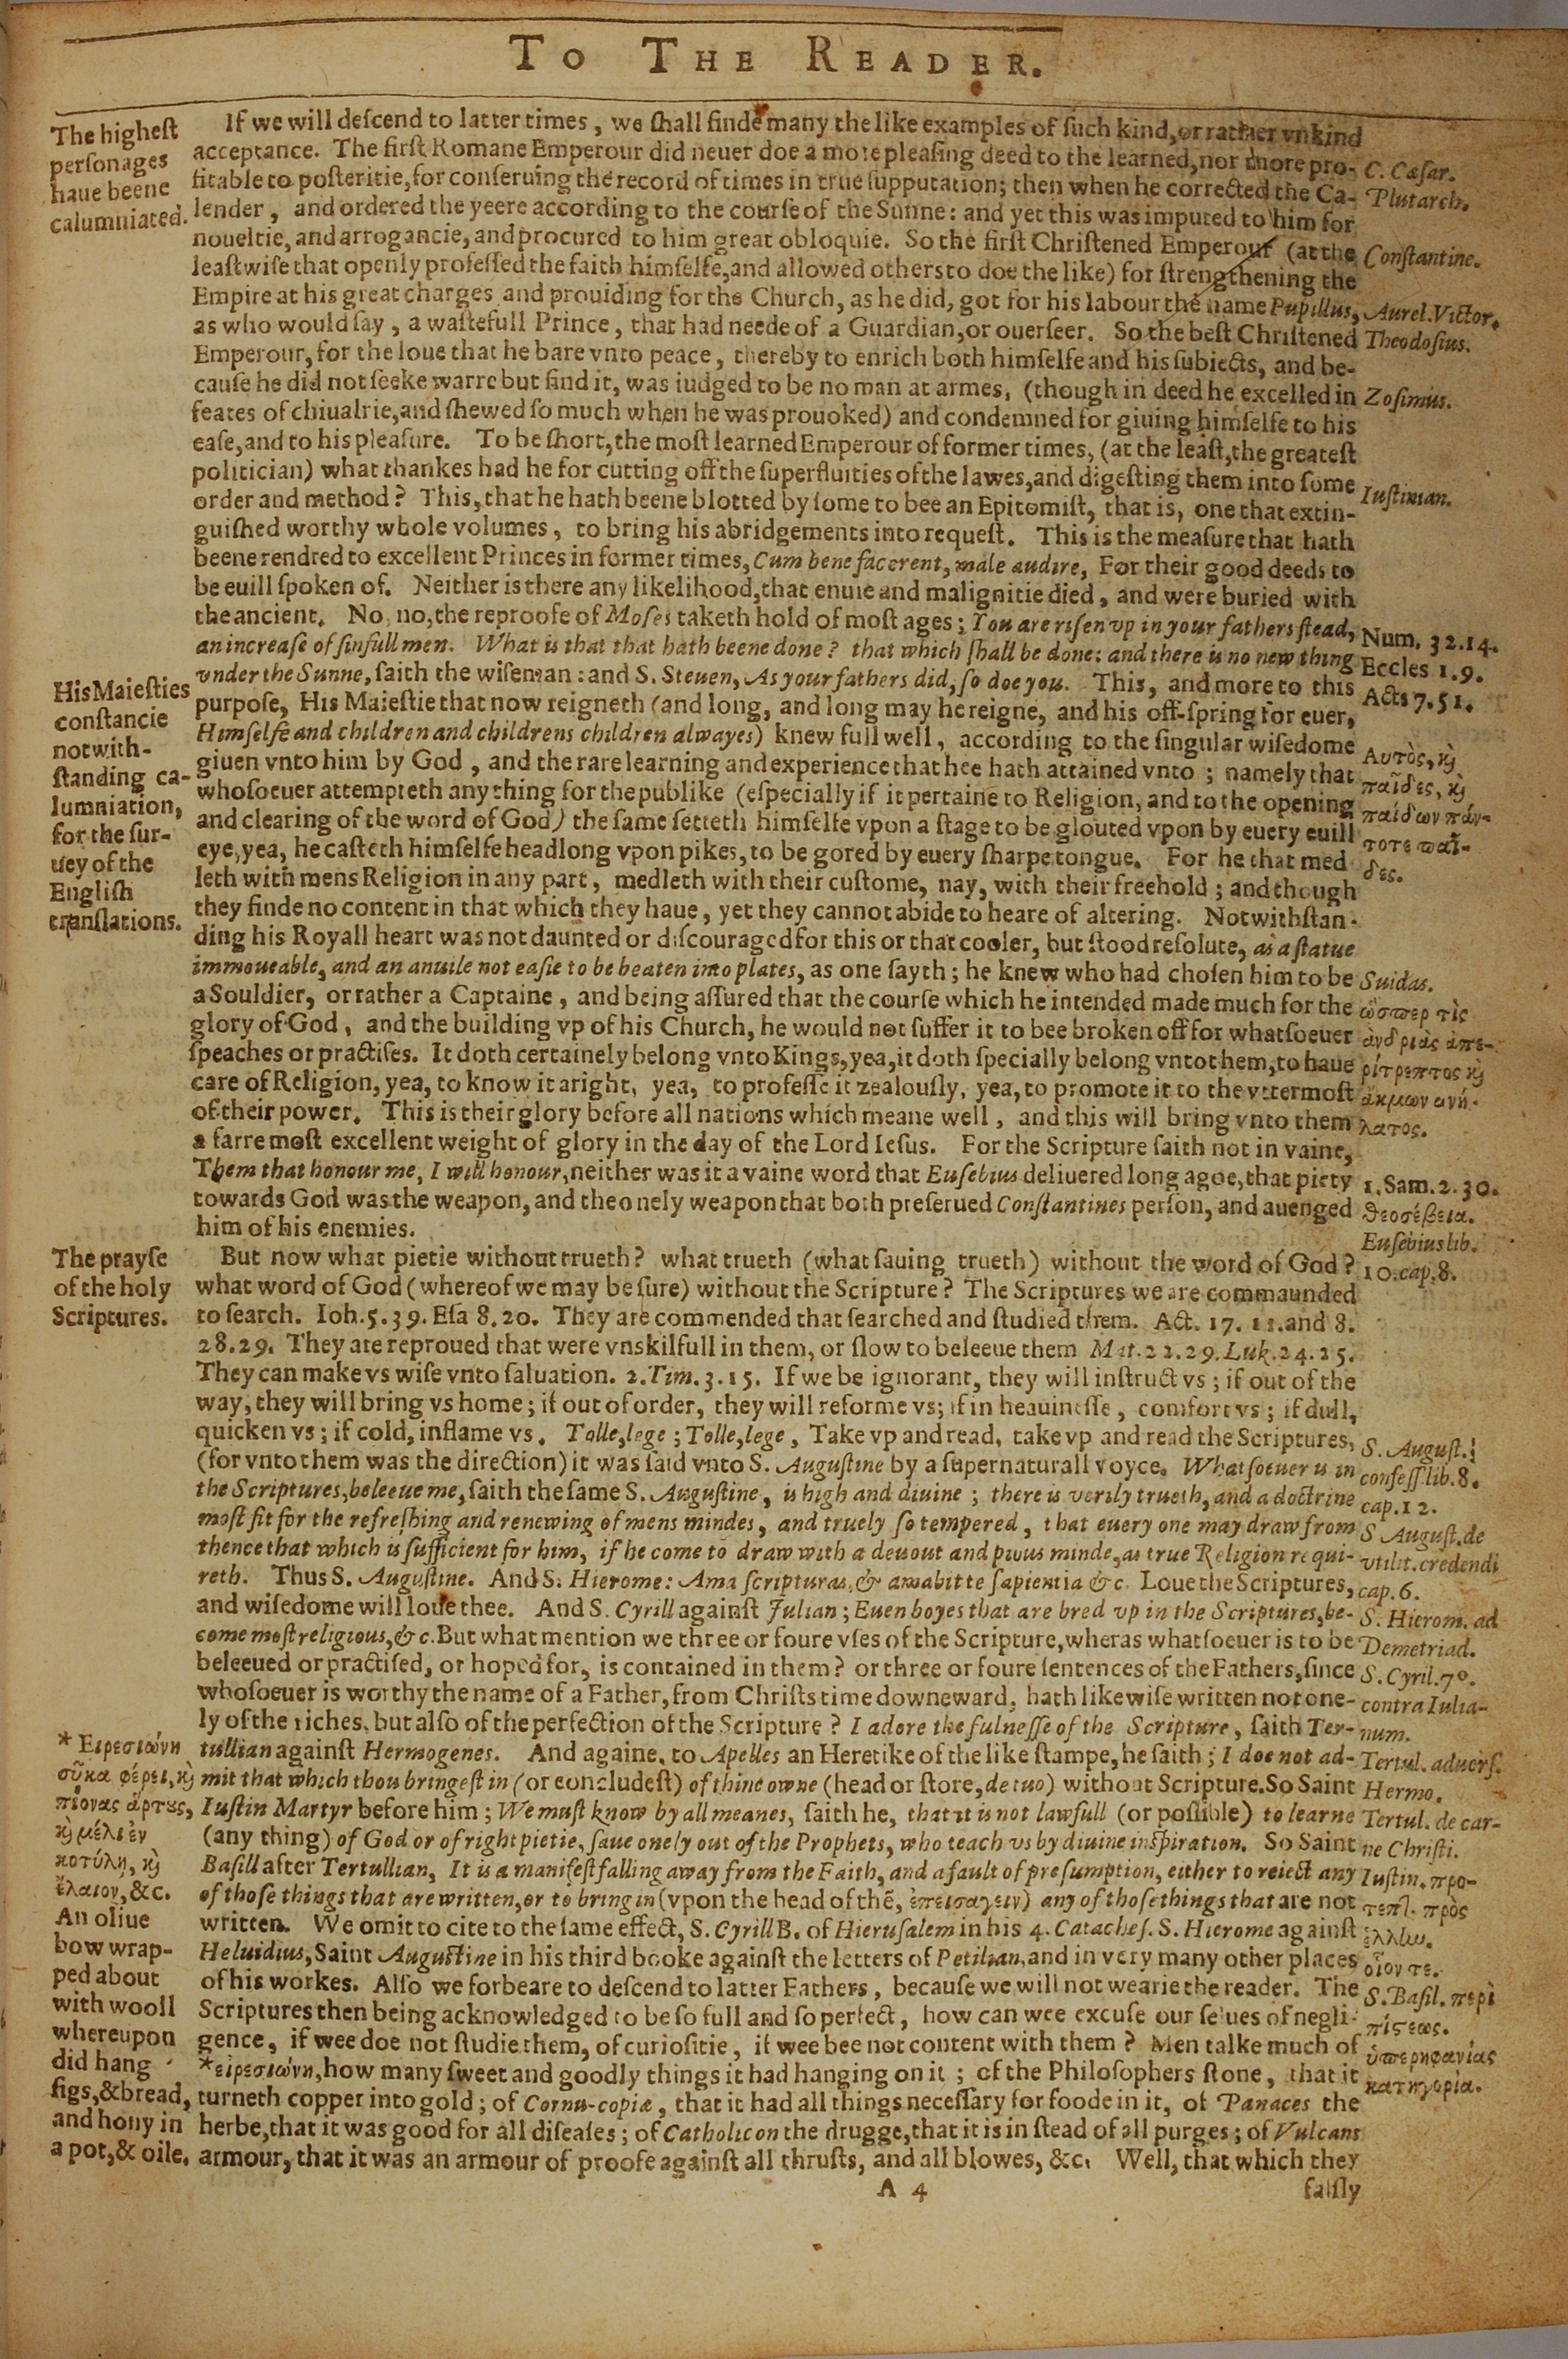 TO THE READER.
The highest
personages
haue beene
calumniated.
If we will deſcend to latter times, we ſhall finde many the like examples of ſuch kind, or rather vnkind
acceptance. The firſt Romane Emperour did neuer doe a more pleaſing deed to the learned, nor more pro-
fitable to poſteritie, for conſeruing the record of times in true ſupputation; then when he corrected the Ca-
lender, and ordered the yeere according to the courſe of the Sunne: and yet this was imputed to him for
noueltie, and arrogancie, and procured to him great obloquie. So the firſt Chriſtened Emperour (at the
leaſtwiſe that openly profeſſed the faith himſelfe, and allowed others to doe the like) for ſtrengthening the
Empire at his great charges and prouiding for the Church, as he did, got for his labour the name Pupillus,
as who would ſay, a waſtefull Prince, that had neede of a Guardian, or ouerſeer. So the beſt Chriſtened
Emperour, for the loue that he bare vnto peace, thereby to enrich both himſelfe and his ſubiects, and be-
cauſe he did not ſeeke warre but find it, was iudged to be no man at armes, (though in deed he excelled in
feates of chiualrie, and ſhewed ſo much when he was prouoked) and condemned for giuing himſelfe to his
eaſe, and to his pleaſure. To be ſhort, the moſt learned Emperour of former times, (at the leaſt, the greateſt
politician) what thankes had he for cutting off the ſuperfluities of the lawes, and digeſting them into ſome
order and method? This, that he hath beene blotted by ſome to bee an Epitomiſt, that is, one that extin-
guiſhed worthy whole volumes, to bring his abridgements into requeſt. This is the meaſure that hath
beene rendred to excellent Princes in former times, Cum bene facerent, male audire, For their good deeds to
be euill ſpoken of. Neither is there any likelihood, that enuie and malignitie died, and were buried with
the ancient. No, no, the reproofe of Moſes taketh hold of moſt ages; You are riſen vp in your fathers ſtead,
an increaſe of ſinfull men. What is that that hath beene done? that which ſhall be done: and there is no new thing
vnder the Sunne, ſaith the wiſeman: and S. Steuen, As your fathers did, ſo doe you. This, and more to this
purpoſe, His Maieſtie that now reigneth (and long, and long may he reigne, and his off-ſpring for euer,
Himſelfe and children and childrens children alwayes) knew full well, according to the ſingular wiſedome
giuen vnto him by God, and the rare learning and experience that hee hath attained vnto; namely that
whoſoeuer attempteth any thing for the publike (eſpecially if it pertaine to Religion, and to the opening
and clearing of the word of God) the ſame ſetteth himſelfe vpon a ſtage to be glouted vpon by euery euill
eye, yea, he caſteth himſelfe headlong vpon pikes, to be gored by euery ſharpe tongue. For he that med
leth with mens Religion in any part, medleth with their cuſtome, nay, with their freehold; and though
they finde no content in that which they haue, yet they cannot abide to heare of altering. Notwithſtan-
ding his Royall heart was not daunted or diſcouraged for this or that cooler, but ſtood reſolute, as a ſtatue
immoueable, and an anuile not eaſie to be beaten into plates, as one ſayth; he knew who had choſen him to be
a Souldier, or rather a Captaine, and being aſſured that the courſe which he intended made much for the
glory of God, and the building vp of his Church, he would not ſuffer it to bee broken off for whatſoeuer
ſpeaches or practiſes. It doth certainely belong vnto Kings, yea, it doth ſpecially belong vnto them, to haue
care of Religion, yea, to know it aright, yea, to profeſſe it zealouſly, yea, to promote it to the vttermoſt
of their power. This is their glory before all nations which meane well, and this will bring vnto them
a farre moſt excellent weight of glory in the day of the Lord Ieſus. For the Scripture ſaith not in vaine,
Them that honour me, I will honour, neither was it a vaine word that Euſebius deliuered long agoe, that piety
towards God was the weapon, and the onely weapon that both preſerued Conſtantines perſon, and auenged
him of his enemies.
C. Cæſar.
Plutarch.
Conſtantine.
Aurel. Victor.
Theodoſius.
Zoſimus.
Iuſtinian.
Num. 32.14.
Eccles 1.9.
Acts 7.51.
Αυτὸς, ϗ
παῖδες, ϗ
παίδων πάν-
τοτε παῖ-
δες.
Suidas.
ὥσπερ τὶς
ἀνδριὰς ἀπε-
ρίτρεπτος ϗ
ἄκμων ανή-
λατος.
1. Sam. 2. 30.
θεοσέβεια.
Euſebius lib.
10. cap. 8.
His Maieſties
conſtancie
notwith-
ſtanding ca-
lumniation,
for the ſur-
uey of the
Engliſh
tranſlations.
The prayſe
of the holy
Scriptures.
But now what pietie without trueth? what trueth (what ſauing trueth) without the word of God?
what word of God (whereof we may be ſure) without the Scripture? The Scriptures we are commaunded
to ſearch. Ioh. 5. 39. Eſa 8. 20. They are commended that ſearched and ſtudied them. Act. 17. 11. and 8.
28. 29. They are reproued that were vnskilfull in them, or ſlow to beleeue them Mat. 22. 29. Luk. 24. 25.
They can make vs wiſe vnto ſaluation. 2. Tim. 3. 15. If we be ignorant, they will inſtruct vs; if out of the
way, they will bring vs home; if out of order, they will reforme vs; if in heauineſſe, comfort vs; if dull,
quicken vs; if cold, inflame vs. Tolle, lege; Tolle, lege, Take vp and read, take vp and read the Scriptures,
(for vnto them was the direction) it was ſaid vnto S. Auguſtine by a ſupernaturall voyce. Whatſoeuer is in
the Scriptures, beleeue me, ſaith the ſame S. Auguſtine, is high and diuine; there is verily trueth, and a doctrine
moſt fit for the refreſhing and renewing of mens mindes, and truely ſo tempered, that euery one may draw from
thence that which is ſufficient for him, if he come to draw with a deuout and pious minde, as true Religion requi-
reth. Thus S. Auguſtine. And S. Hierome: Ama ſcripturas, & amabit te ſapientia &c. Loue the Scriptures,
and wiſedome will loue thee. And S. Cyrill againſt Julian; Euen boyes that are bred vp in the Scriptures, be-
come moſt religious, &c. But what mention we three or foure vſes of the Scripture, wheras whatſoeuer is to be
beleeued or practiſed, or hoped for, is contained in them? or three or foure ſentences of the Fathers, ſince
whoſoeuer is worthy the name of a Father, from Chriſts time downeward, hath likewiſe written not one-
ly of the riches, but alſo of the perfection of the Scripture? I adore the fulneſſe of the Scripture, ſaith Ter-
tullian againſt Hermogenes. And againe, to Apelles an Heretike of the like ſtampe, he ſaith; I doe not ad-
mit that which thou bringeſt in (or concludeſt) of thine owne (head or ſtore, de tuo) without Scripture. So Saint
Iuſtin Martyr before him; We muſt know by all meanes, ſaith he, that it is not lawfull (or poſſible) to learne
(any thing) of God or of right pietie, ſaue onely out of the Prophets, who teach vs by diuine inſpiration. So Saint
Baſill after Tertullian, It is a manifeſt falling away from the Faith, and a fault of preſumption, either to reiect any
of thoſe things that are written, or to bring in (vpon the head of thē, ἐπεισαγειν) any of thoſe things that are not
written. We omit to cite to the ſame effect, S. Cyrill B. of Hieruſalem in his 4. Catacheſ. S. Hierome againſt
Heluidius, Saint Auguſtine in his third booke againſt the letters of Petilian, and in very many other places
of his workes. Alſo we forbeare to deſcend to latter Fathers, becauſe we will not wearie the reader. The
Scriptures then being acknowledged to be ſo full and ſo perfect, how can wee excuſe our ſelues of negli-
gence, if wee doe not ſtudie them, of curioſitie, if wee bee not content with them? Men talke much of
*εἰρεσιώνη, how many ſweet and goodly things it had hanging on it; of the Philoſophers ſtone, that it
turneth copper into gold; of Cornu-copiæ, that it had all things neceſſary for foode in it, of Panaces the
herbe, that it was good for all diſeaſes; of Catholicon the drugge, that it is in ſtead of all purges; of Vulcans
armour, that it was an armour of proofe againſt all thruſts, and all blowes, &c. Well, that which they
S. Auguſt.
confeſſ lib. 8.
cap. 12.
S August. de
vtilit. credendi
cap. 6.
S. Hierom. ad
Demetriad.
S. Cyril. 7º.
contra Iulia-
num.
Tertul. aduerſ.
Hermo.
Tertul. de car-
ne Chriſti.
Iuſtin. προ-
τεπ. πρὸς
ἑλλην.
οἷον τε.
S. Baſil. περὶ
πίϛεως.
ὑπερηφανίας
κατηγορία.
* Ειρεσιώνη
σῦκα φέρει, ϗ
πίονας ἄρτους,
ϗ μέλι ἐν
κοτύλη, ϗ
ἔλαιον, &c.
An oliue
bow wrap-
ped about
with wooll
whereupon
did hang
figs, & bread,
and hony in
a pot, & oile.
A 4
falſly